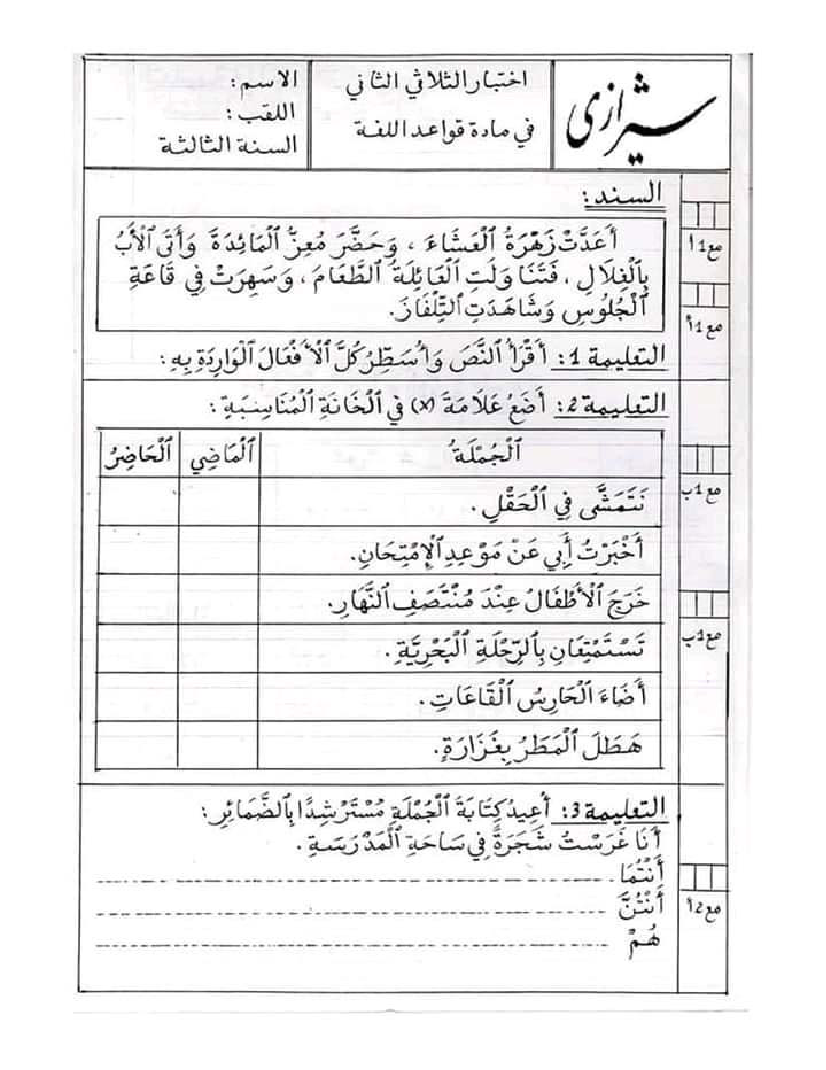 شيرازي
اختبار الثلاثي الثاني
في مادة قواعد اللغة
الاسم:
اللقب:
السنة الثالثة
السند:
أَعَدَّتْ زَهْرَةُ ٱلْعَشَاءَ ، وَحَضَّرَ مُعِزُّ ٱلْمَائِدَةَ وَأَتَى ٱلْأَبُ
بِٱلْغِلَالِ ، فَتَنَاوَلَتِ ٱلْعَائِلَةُ ٱلطَّعَامَ، وَسَهِرَتْ فِي قَاعَةِ
ٱلْجُلُوسِ وَشَاهَدَتِ ٱلتِّلْفَازَ.
مع1أ
مع1أ
التعليمة 1: أَقْرَأُ ٱلنَّصَ وَأُسَطِّرُ كُلَّ ٱلْأَفْعَالَ ٱلْوَارِدَةِ بِهِ:
التعليمة 2: أَضَعُ عَلَامَةَ (x) فِي ٱلْخَانَةِ ٱلْمُنَاسِبَةِ:
ٱلْجُمْلَةُ ٱلْمَاضِي ٱلْحَاضِرُ
نَتَمَشَّى فِي ٱلْحَقْلِ .
أَخْبَرْتُ أَبِي عَنْ مَوْعِدِ ٱلْإِمْتِحَانِ.
خَرَجَ ٱلْأَطْفَالُ عِنْدَ مُنْتَصَفِ ٱلنَّهَارِ.
تَسْتَمْتِعَانِ بِٱلرِّحْلَةِ ٱلْبَحْرِيَّةِ .
أَضَاءَ ٱلْحَارِسُ ٱلْقَاعَاتِ .
هَطَلَ ٱلْمَطَرُ بِغَزَارَةٍ.
مع1ب
مع1ب
التعليمة 3: أُعِيدُ كِتَابَةَ ٱلْجُمْلَةِ مُسْتَرْشِدًا بِٱلضَّمَائِرِ:
أَنَا غَرَسْتُ شَجَرَةً فِي سَاحَةِ ٱلْمَدْرَسَةِ .
أَنْتُمَا
أَنْتُنَّ
هُمْ
مع2أ